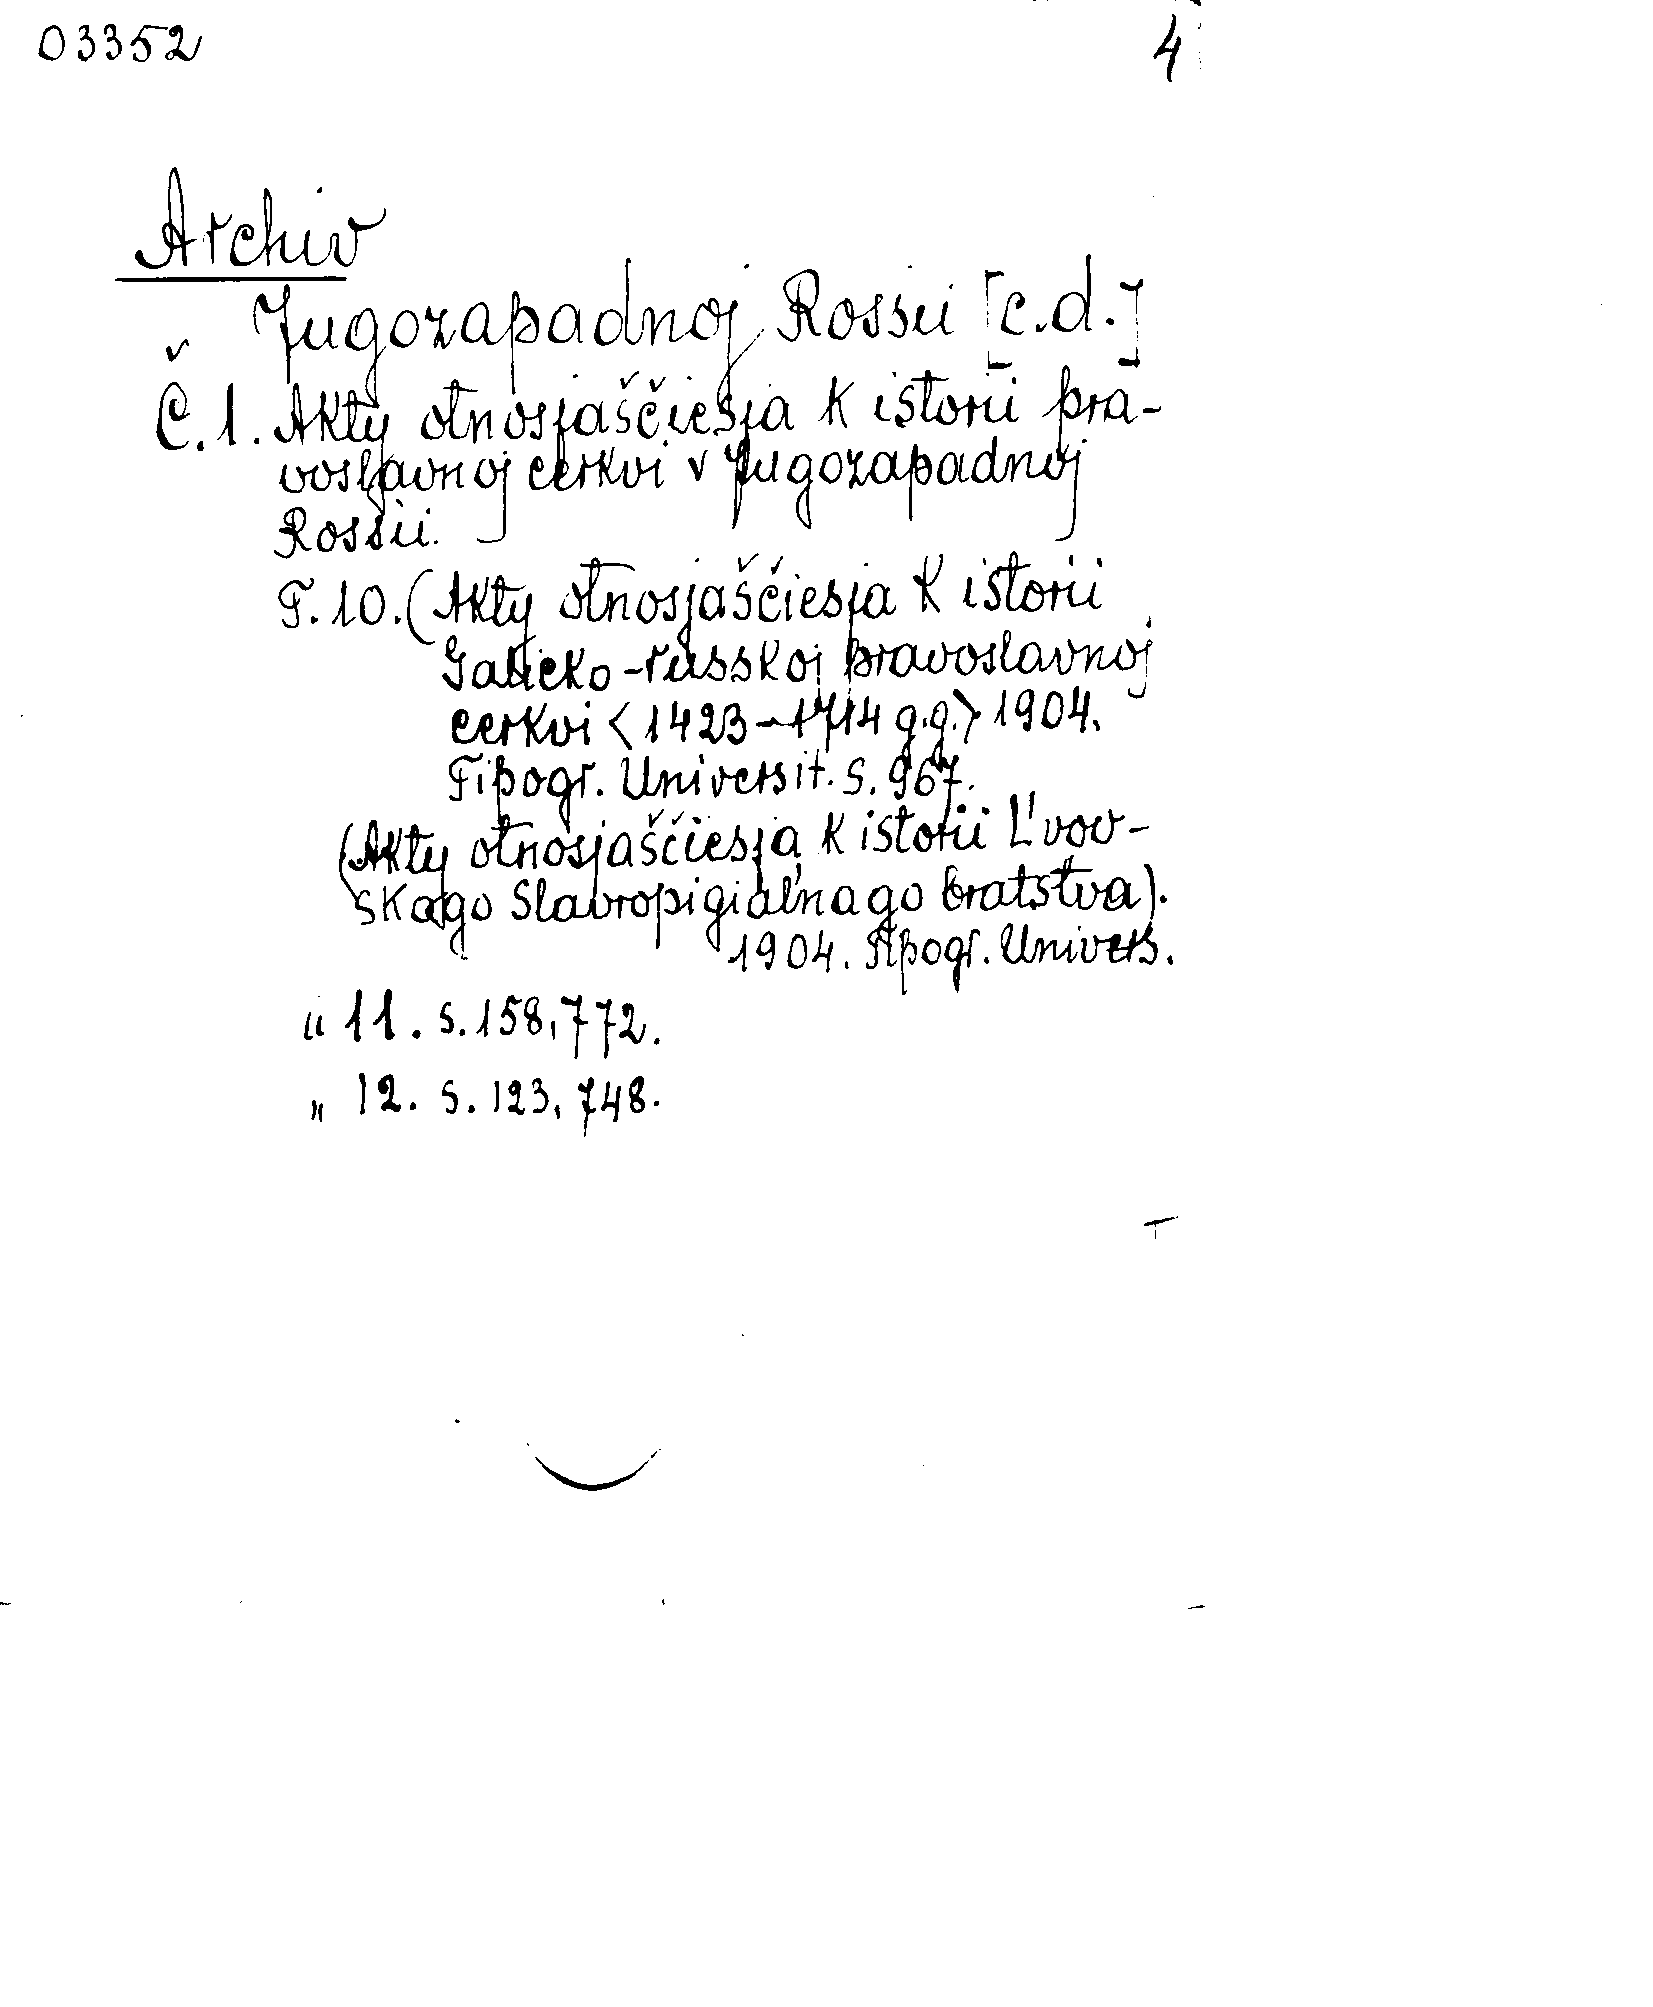 03352
4
Archiv
Jugozapadnoj Rossii [c.d.]
Č.1. Akty otnosjaščiesja k istorii pra-
voslavnoj cerkvi v Jugozapadnoj
Rossii.
T.10. (Akty otnosjaščiesja k istorii
Galicko-russkoj pravoslavnoj
cerkvi <1423-1714 g.g.> 1904.
Tipogr. Universit. S. 967.
(Akty otnosjaščiesja k istorii L'vov-
skago Stavropigial'nago bratstva).
1904. Tipogr. Univers.
" 11. s. 158, 772.
" 12. s. 123, 748.